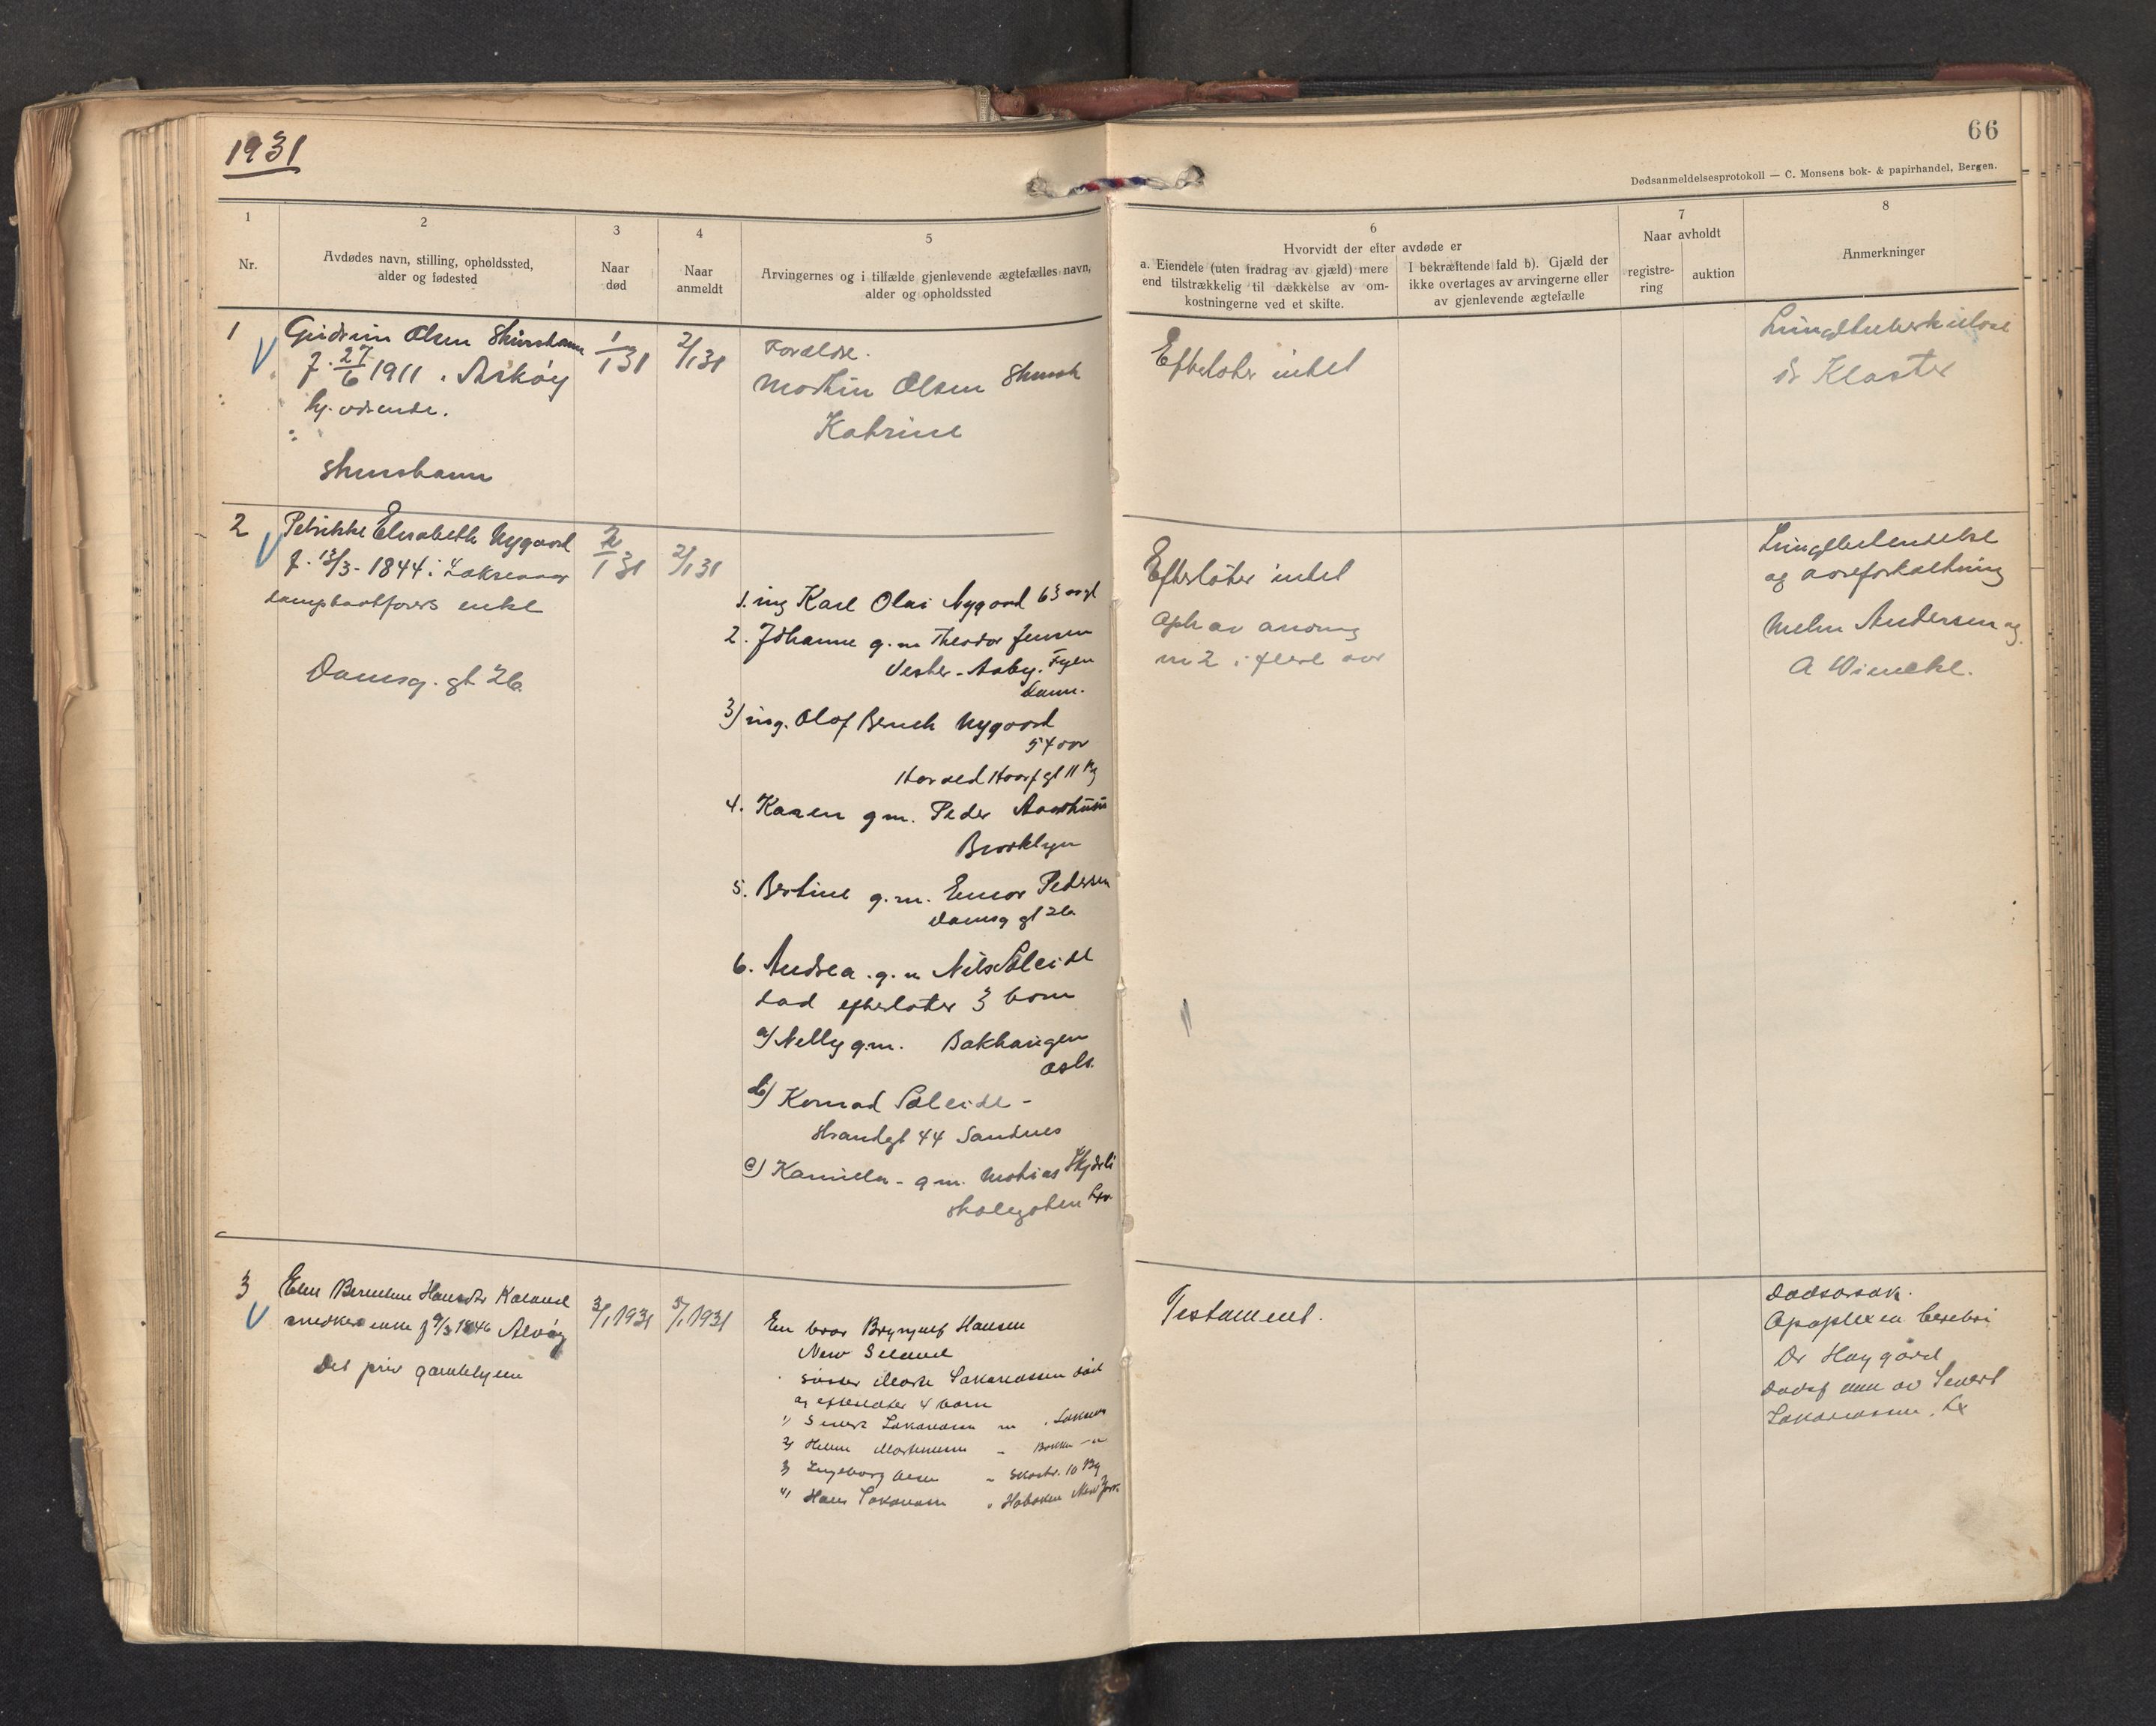 1931
66
Dødsanmeldelsesprotokoll — C. Monsens bok- & papirhandel, Bergen.
1
Nr.
2
Avdødes navn, stilling, opholdssted,
alder og fødested
3
Naar
død
4
Naar
anmeldt
5
Arvingernes og i tilfælde gjenlevende ægtefælles navn,
alder og opholdssted
6
Hvorvidt der efter avdøde er
a. Eiendele (uten fradrag av gjæld) mere
end tilstrækkelig til dækkelse av om-
kostningerne ved et skifte.
I bekræftende fald b). Gjæld der
ikke overtages av arvingerne eller
av gjenlevende ægtefælle
7
Naar avholdt
registre-
ring
auktion
8
Anmerkninger
1
Gudrun Olsen
f. 27/6 1911 i Askøy
hj. værende.
1/1 31
2/1 31
Forældre.
Martin Olsen
Katrine
Efterlater intet
Lungetuberkulose
dr Kloster
2
Petrikke Elisabeth Nygaard
f. 13/3 - 1844 i
dampbaatførers enke
Damsg. gt 26
2/1 31
2/1 31
1. ing Karl Olai Nygaard 63 aar
2. Johanne g. m Theodor Jensen
Vester - Aaby. Fyen
Danm.
3) ing. Olaf Bernh Nygaard
54 aar
Harald Haarf gt 11 Bg
4. Karen g m. Peder
Brooklyn
5. Bertine g. m. Einar Pedersen
Damsg gt 26
6. Andrea . g. m Nils Søleide
død efterlater 3 barn
a) Nelly g.m. Bakhaugen
Oslo.
b) Konrad Søleide -
Strandgt 44 Sandnes
c) Kamilla - g m. Mathias
Skolegaten
Efterlater intet
Oph av andung
m 2 i flere aar
Lungebetendelse
og aareforkalkning
Andersen og
A Wincke.
3
Elen Hansdtr
snedker enke f 9/3 1846 Alvøy
Det priv gamlehjem
3/1 1931
5/1 1931
En bror Brynjulf Hansen
New Seland
søster Marte Sakariassen død
og efterlater 4 barn
1) Sivert Sakariassen m
2) Helene Martinussen
3) Ingeborg Olsen 10 Bg
4) Hans Sakariassen Hoboken New York
Testament.
Dødsårsak.
Apoplexia cerebri
Dr Haygård
Sivert
Sakariassen, Lx